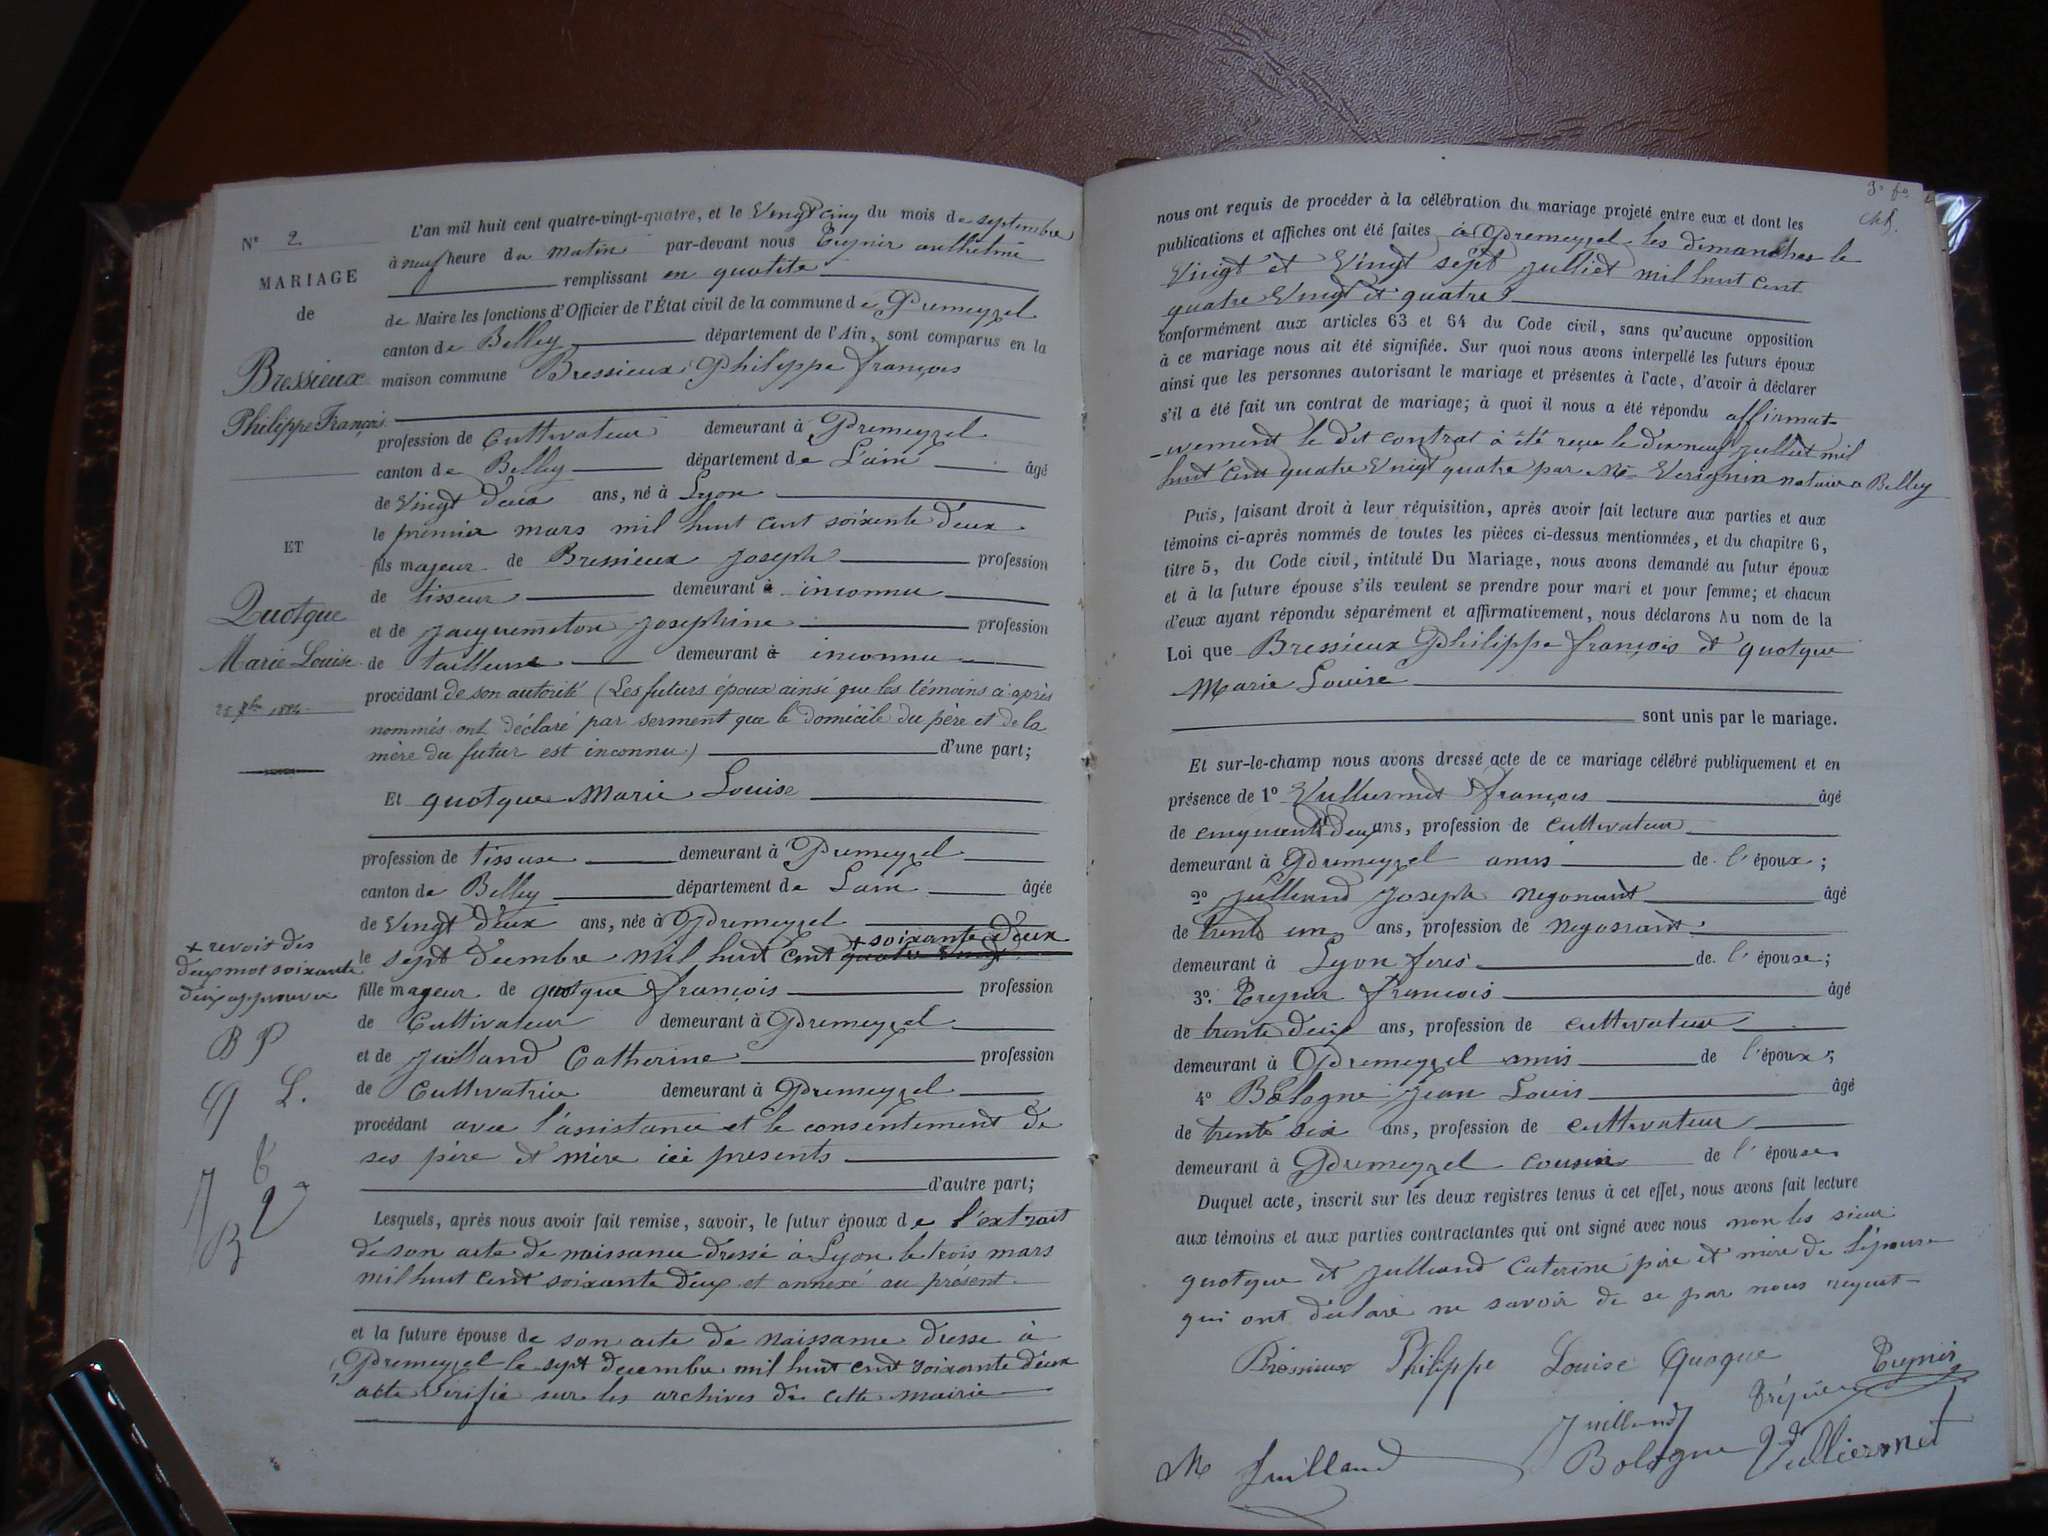 N° 2.
MARIAGE
de
Bressieux
Philippe François
ET
Quotque
Marie Louise
25 7bre 1884
+ renvoit des
deux mot soixante
deux approuvé
B P
q L.
L'an mil huit cent quatre-vingt-quatre, et le Vingt cinq du mois de septembre
à neuf heure du matin par-devant nous Treynir anthelme
remplissant en qualité
de Maire les fonctions d'Officier de l'État civil de la commune de Premeyzel
canton de Belley département de l'Ain, sont comparus en la
maison commune Bressieux Philippe françois
profession de Cultivateur demeurant à Premeyzel
canton de Belley département de L'ain âgé
de Vingt deux ans, né à Lyon
le premier mars mil huit cent soixente deux
fils majeur de Bressieux Joseph profession
de tisseur demeurant à inconnu
et de Jacquemeton Josephine profession
de tailleuse demeurant à inconnu
procédant de son autorité (Les futurs époux ainsi que les témoins ci après
nommés ont déclaré par serment que le domicile du père et de la
mère du futur est inconnu) d'une part;
Et quotque Marie Louise
profession de tisseuse demeurant à Premeyzel
canton de Belley département de Lain âgée
de Vingt deux ans, née à Premeyzel
+ soixante deux
le sept decembre mil huit cent quatre vingt
fille majeur de quotque françois profession
de Cultivateur demeurant à Premeyzel
et de Juilland Catherine profession
de Cultivatrice demeurant à Premeyzel
procédant avec l'assistance et le consentement de
ses père et mère ici presents
d'autre part;
Lesquels, après nous avoir fait remise, savoir, le futur époux de l'extrait
de son acte de naissance dressé à Lyon le trois mars
mil huit cent soixante deux et annexé au présent
et la future épouse de son acte de naissance dresse à
Premeyzel le sept decembre mil huit cent soixante deux
acte vérifié sur les archives de cette mairie
nous ont requis de procéder à la célébration du mariage projeté entre eux et dont les
publications et affiches ont été faites à Premeyzel les dimanches le
Vingt et Vingt sept Julliet mil huit cent
quatre Vingt et quatre
conformément aux articles 63 et 64 du Code civil, sans qu'aucune opposition
à ce mariage nous ait été signifiée. Sur quoi nous avons interpellé les futurs époux
ainsi que les personnes autorisant le mariage et présentes à l'acte, d'avoir à déclarer
s'il a été fait un contrat de mariage; à quoi il nous a été répondu affirmat-
-ivement le dit contrat à été reçu le dix neuf julliet mil
huit cent quatre Vingt quatre par Me notaire a Belley
Puis, faisant droit à leur réquisition, après avoir fait lecture aux parties et aux
témoins ci-après nommés de toutes les pièces ci-dessus mentionnées, et du chapitre 6,
titre 5, du Code civil, intitulé Du Mariage, nous avons demandé au futur époux
et à la future épouse s'ils veulent se prendre pour mari et pour femme; et chacun
d'eux ayant répondu séparément et affirmativement, nous déclarons Au nom de la
Loi que Bressieux Philippe françois et quotque
Marie Louise
sont unis par le mariage.
Et sur-le-champ nous avons dressé acte de ce mariage célébré publiquement et en
présence de 1° Vulliermet françois âgé
de cinquante deux ans, profession de cultivateur
demeurant à Premeyzel amis de l'époux;
2° Julliand Joseph negociant âgé
de trente un ans, profession de negossiant
demeurant à Lyon de l'épouse;
3° Treynir francois âgé
de trente deux ans, profession de cultivateur
demeurant à Premeyzel amis de l'époux;
4° Bologne Jean Louis âgé
de trente six ans, profession de cultivateur
demeurant à Premeyzel cousin de l'épouse
Duquel acte, inscrit sur les deux registres tenus à cet effet, nous avons fait lecture
aux témoins et aux parties contractantes qui ont signé avec nous non les sieur
quotque et Julliand Caterine père et mère de l'épouse
qui ont déclaré ne savoir de se par nous requit
Bressieux Philippe Louise Quoque Treynir
Juilland
M Juilland Bologne Vulliermet